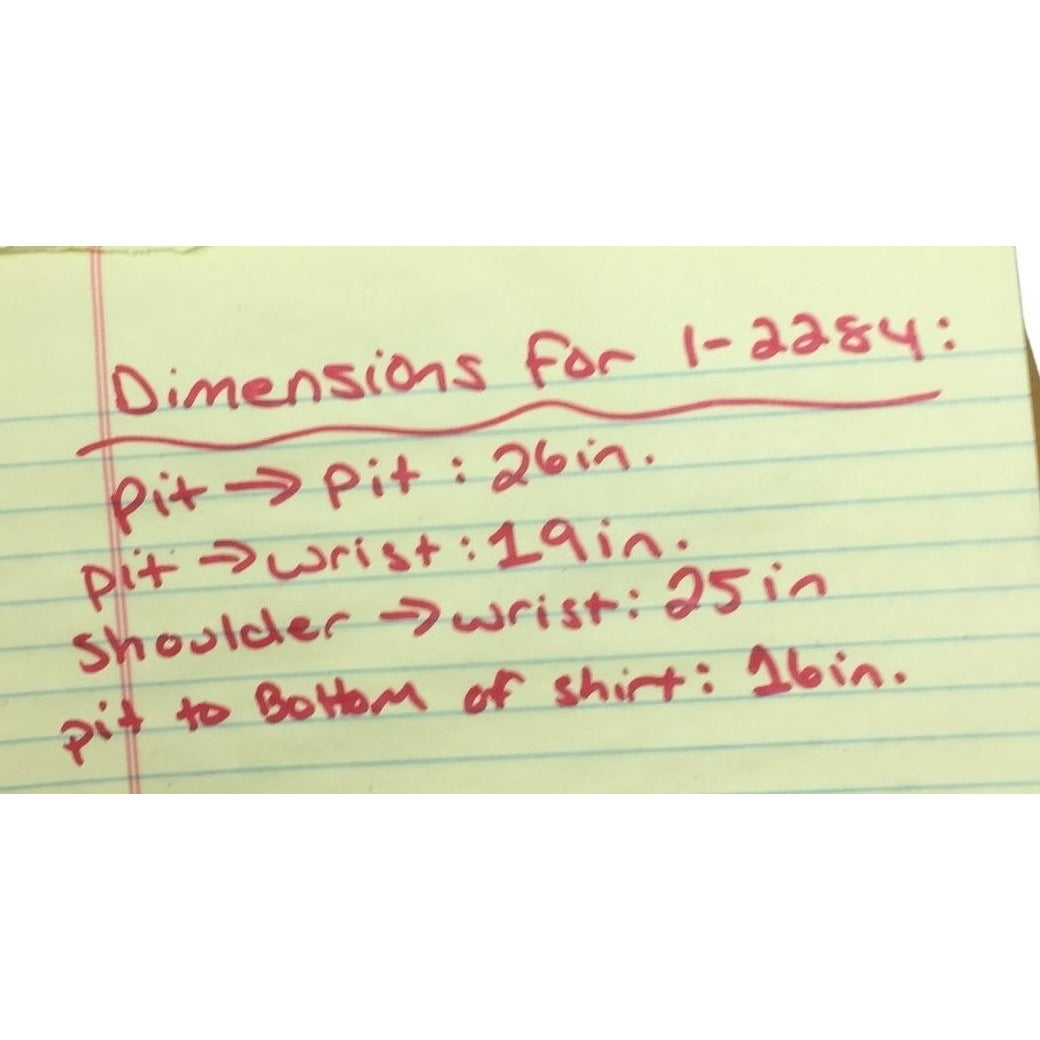 Dimensions for 1-2284:
pit → pit : 26in.
pit → wrist : 19in.
shoulder → wrist: 25in
pit to Bottom of shirt: 16in.